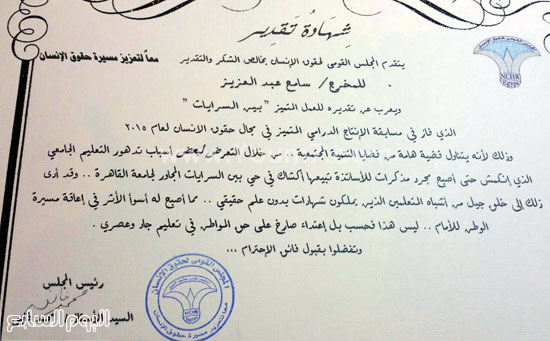 شهادة تقدير
NCHR
EGYPT
معاً لتعزيز مسيرة حقوق الانسان
يتقدم المجلس القومى لحقوق الإنسان بخالص الشكر والتقدير
للمخرج / سامح عبد العزيز
ويعرب عن تقديره للعمل المتميز " بين السرايات "
الذى فاز في مسابقة الإنتاج الدرامي المتميز في مجال حقوق الانسان لعام ٢٠١٥
وذلك لأنه يتناول قضية هامة من قضايا التنمية المجتمعية .. من خلال التعرض لبعض اسباب تدهور التعليم الجامعي
الذي إنكمش حتى أصبح مجرد مذكرات للأساتذة تبيعها أكشاك في حي بين السرايات المجاور لجامعة القاهرة .. وقد أدى
ذلك إلى خلق جيل من أشباه المتعلمين الذين يملكون شهادات بدون علم حقيقي .. مما أصبح له أسوأ الأثر في إعاقة مسيرة
الوطن للأمام .. ليس هذا فحسب بل إعتداء صارخ على حق المواطن في تعليم جاد وعصري .
وتفضلوا بقبول فائق الإحترام ...
رئيس المجلس
السيد
المجلس القومى لحقوق الإنسان
معا لتعزيز مسيرة حقوق الإنسان
اليوم السابع